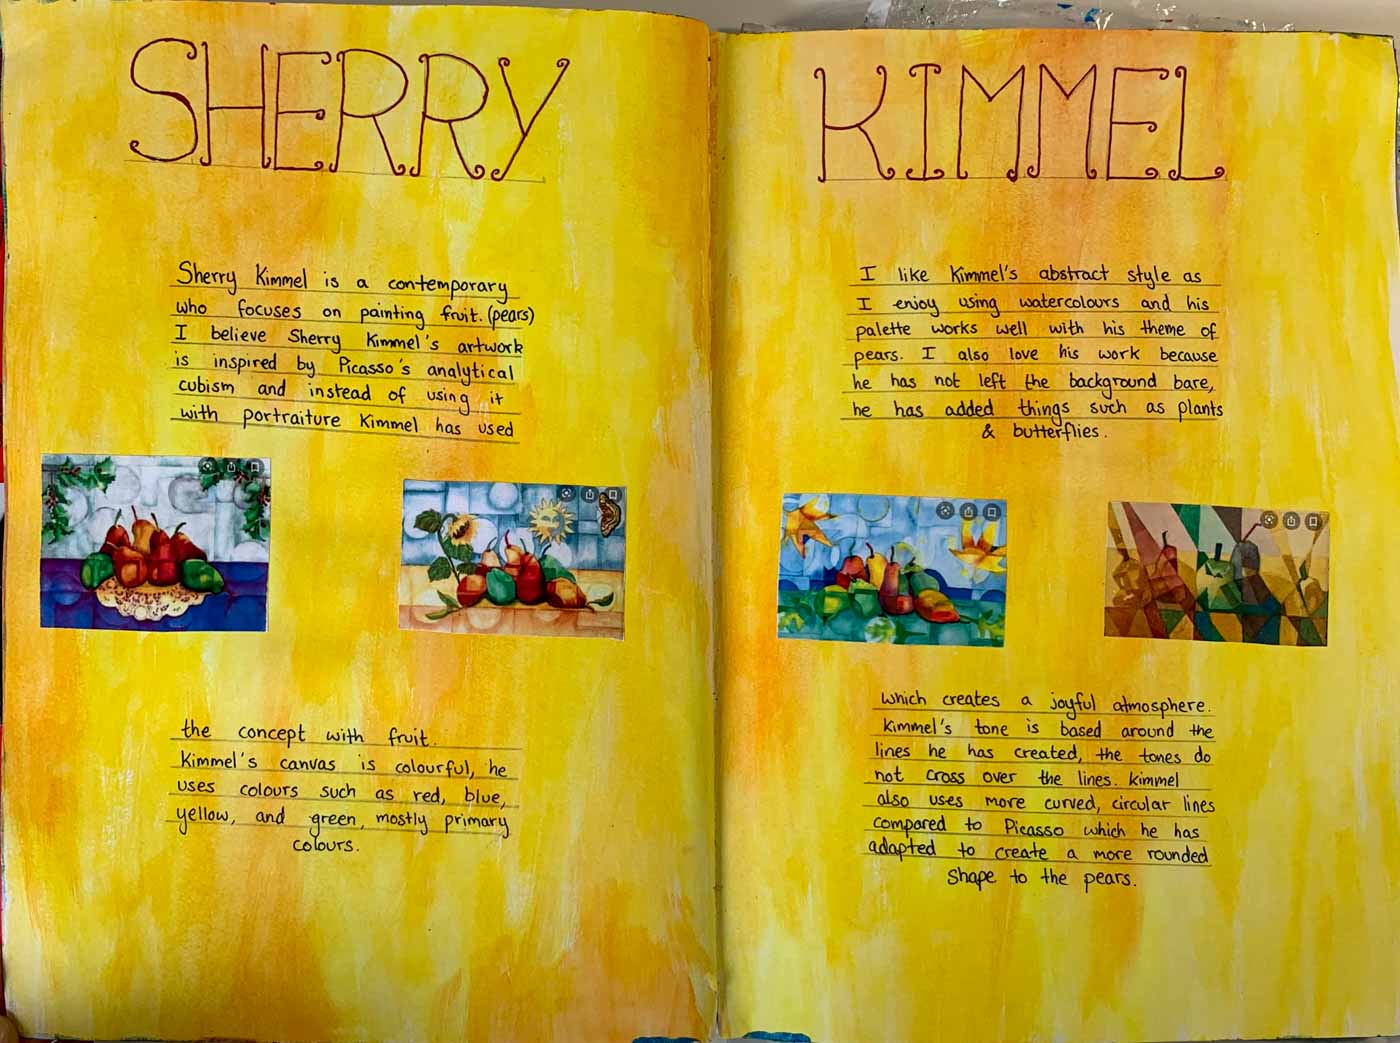 SHERRY
Sherry Kimmel is a contemporary
who focuses on painting fruit. (pears)
I believe Sherry Kimmel's artwork
is inspired by Picasso's analytical
cubism and instead of using it
with portraiture Kimmel has used
the concept with fruit.
Kimmel's canvas is colourful, he
uses colours such as red, blue,
yellow, and green, mostly primary
colours.
KIMMEL
I like Kimmel's abstract style as
I enjoy using watercolours and his
palette works well with his theme of
pears. I also love his work because
he has not left the background bare,
he has added things such as plants
& butterflies.
which creates a joyful atmosphere.
Kimmel's tone is based around the
lines he has created, the tones do
not cross over the lines. Kimmel
also uses more curved, circular lines
compared to Picasso which he has
adapted to create a more rounded
shape to the pears.